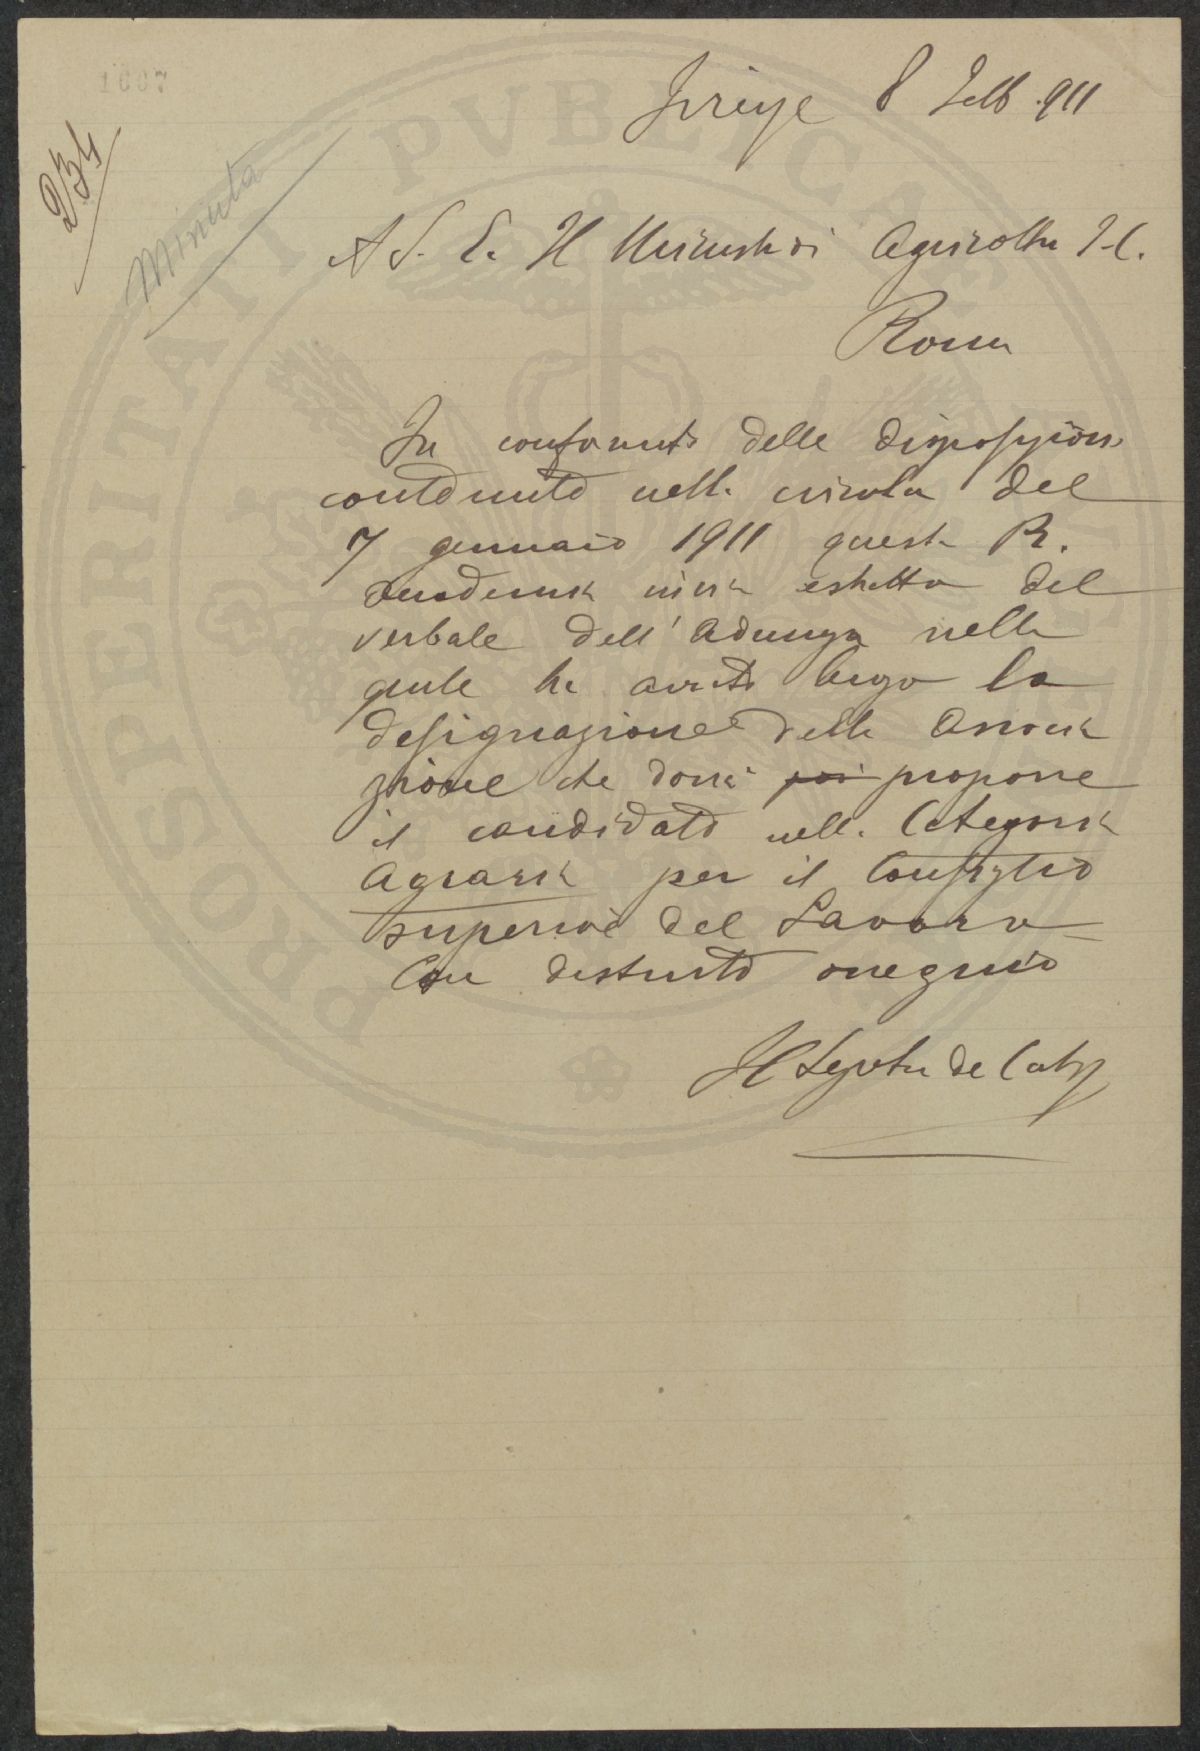 1007
234
Minuta
Firenze 8 Febb. 911
A S. E. Il Ministro di Agricoltura I. C.
Roma
In conformità delle disposizioni
contenute nella circolar del
7 gennaio 1911 questa R.
Accademia invia estratto del
verbale dell'Adunza nella
quale ha avuto luogo la
designazione della Associa
zione che dovrà poi proporre
il candidato nella Categoria
Agraria per il Consiglio
superiore del Lavoro
Con distinto ossequio
Il Segretario
PROSPERITATI PVBLICAE